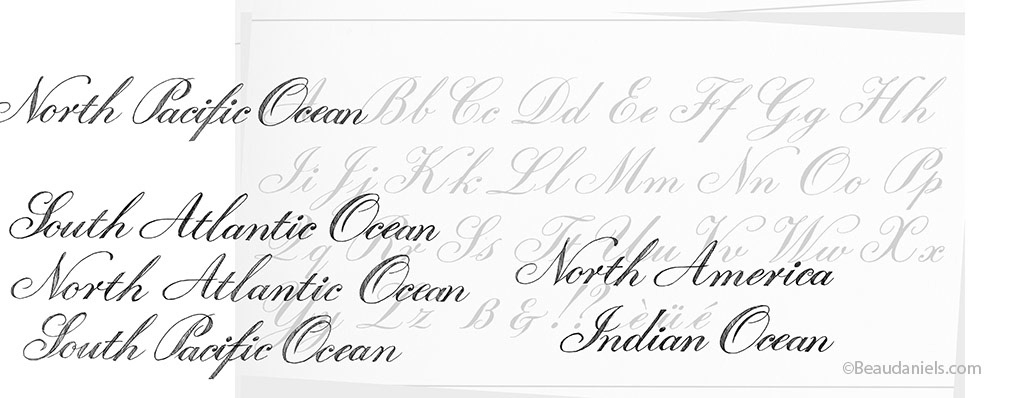 North Pacific Ocean
Bb Cc Dd Ee Ff Gg Hh
Ii Jj Kk Ll Mm Nn Oo Pp
Qq Rr Ss Tt Uu Vv Ww Xx
South Atlantic Ocean
North America
North Atlantic Ocean
Yy Zz B & !? èüé
Indian Ocean
South Pacific Ocean
©Beaudaniels.com